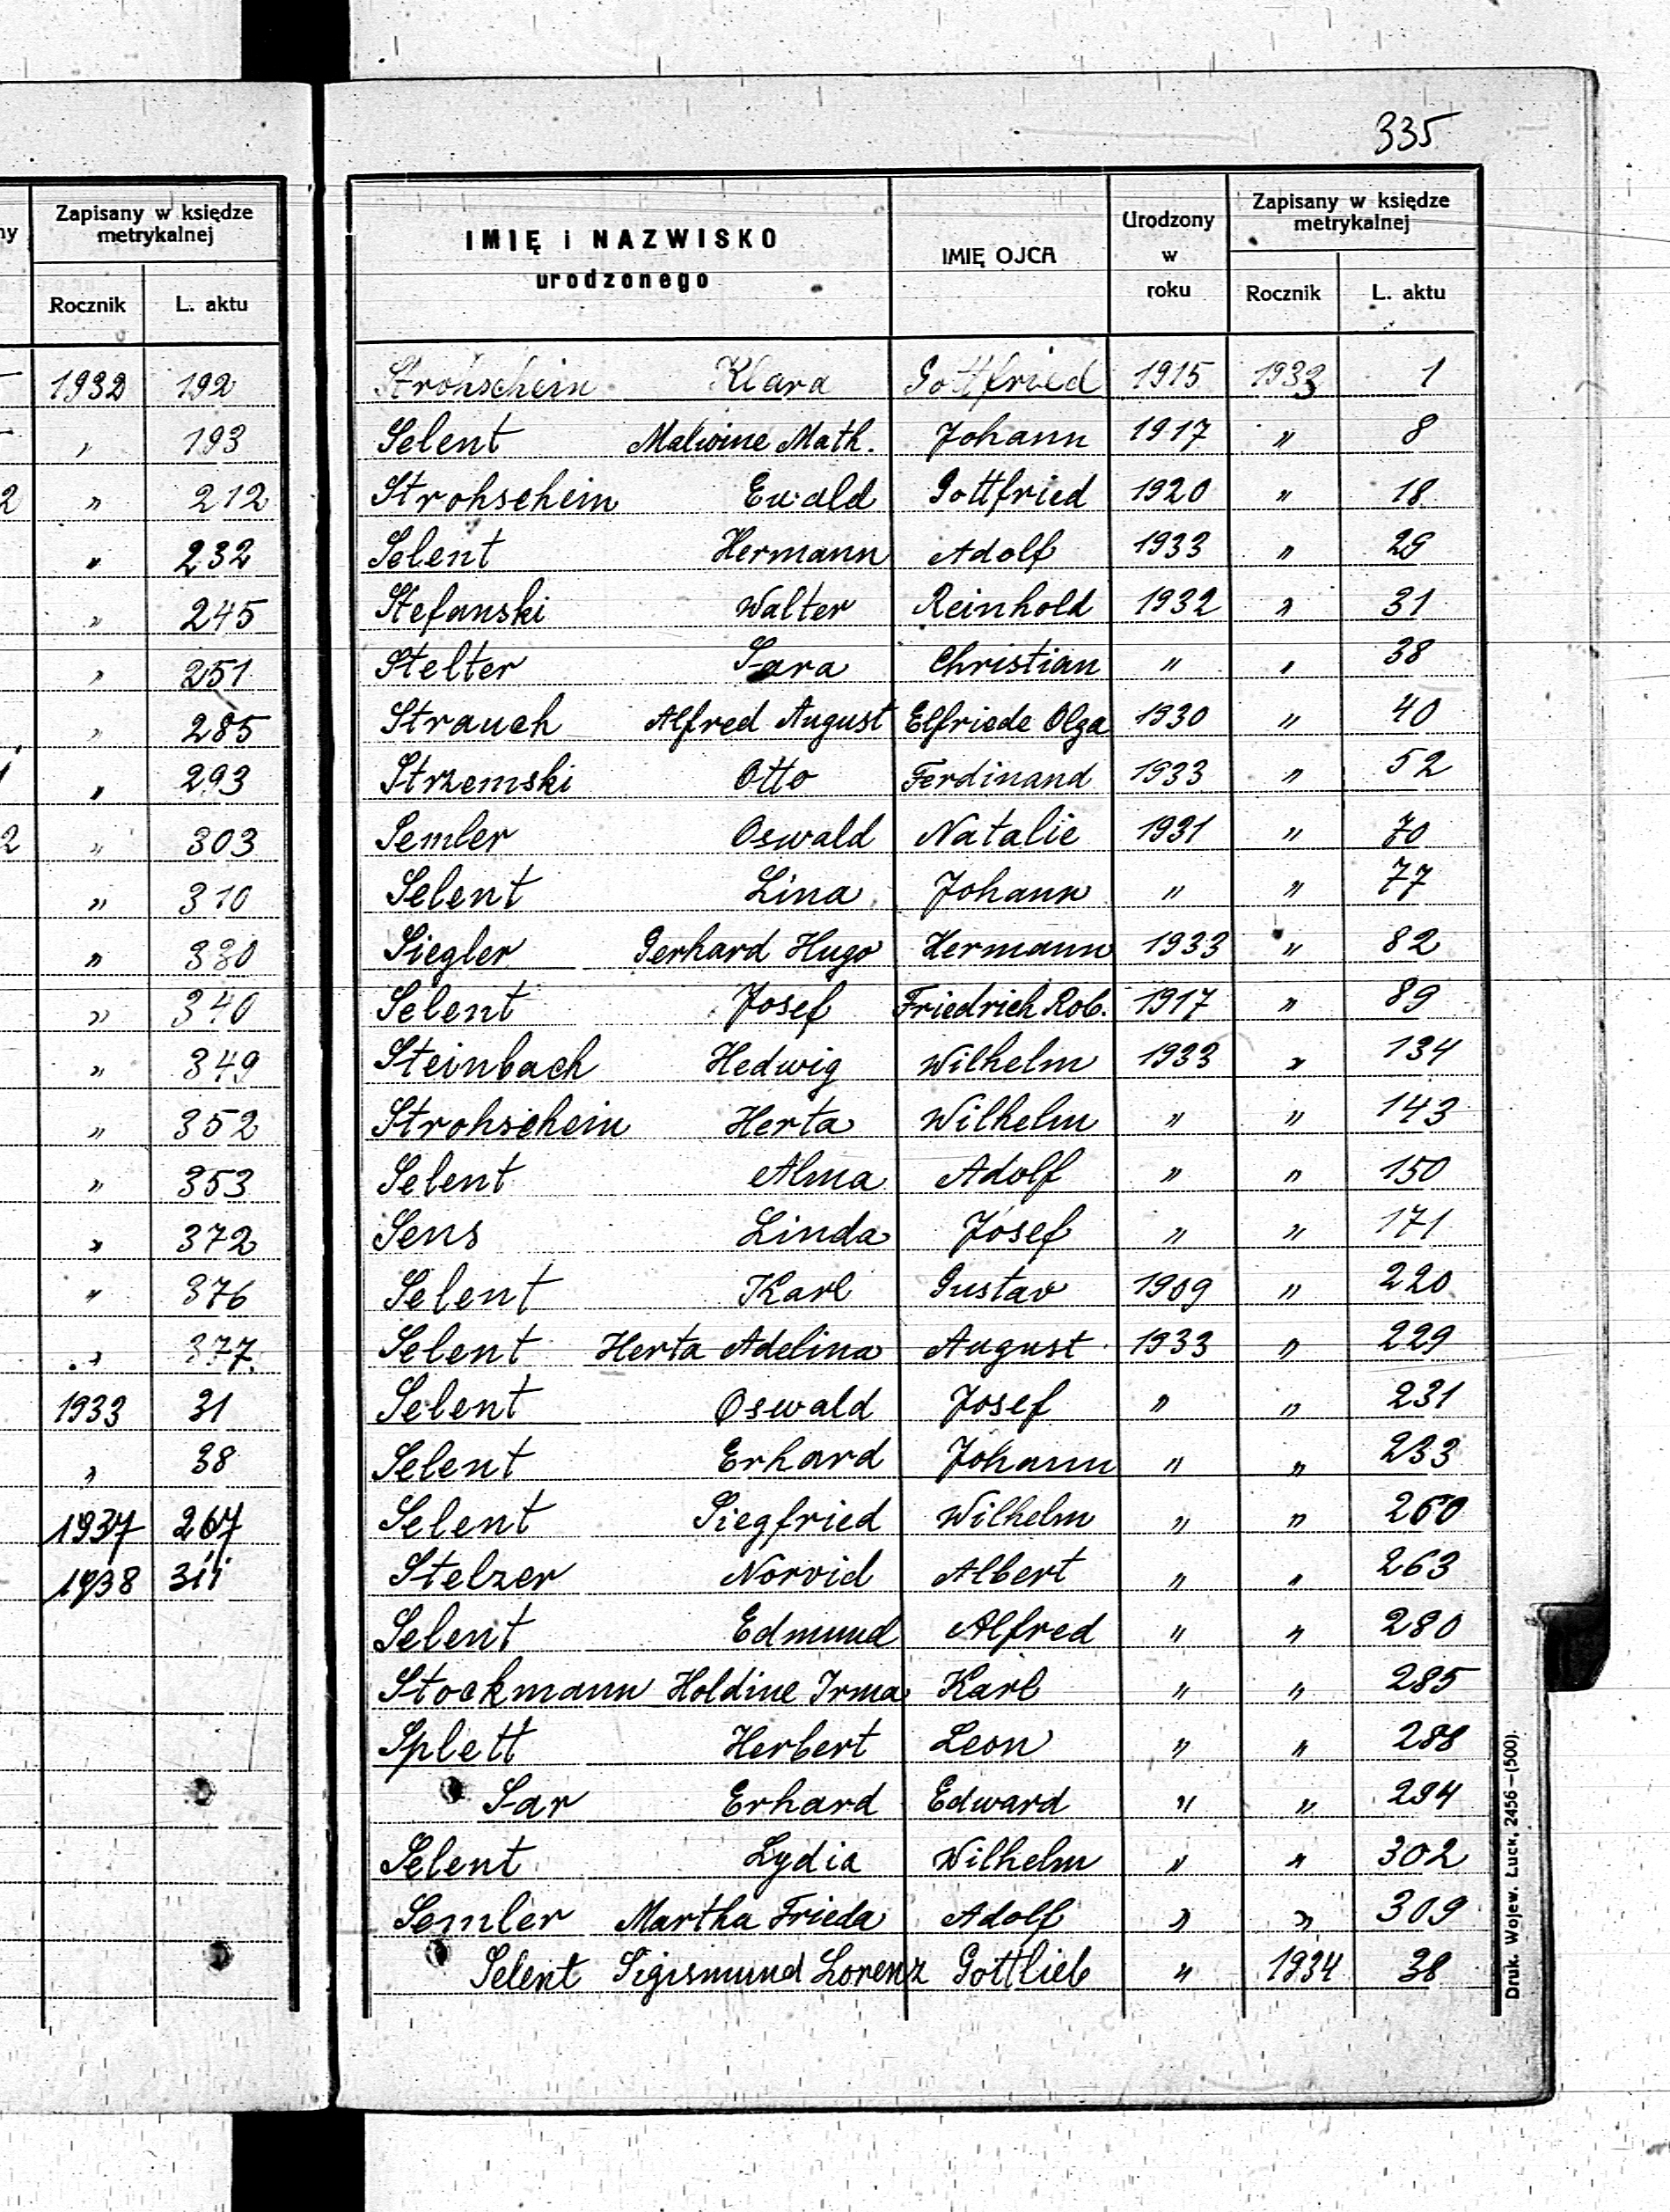 335
ny
Zapisany w księdze
metrykalnej
Rocznik L. aktu
1932 192
" 193
2 " 212
" 232
" 245
" 251
" 285
" 293
2 " 303
" 310
" 330
" 340
" 349
" 352
" 353
" 372
" 376
" 377.
1933 31
" 38
1937 267
1938 311
IMIĘ i NAZWISKO
urodzonego
IMIĘ OJCA
Urodzony
w
roku
Zapisany w księdze
metrykalnej
Rocznik L. aktu
Strohschein Klara Gottfried 1915 1933 1
Selent Malwine Math. Johann 1917 " 8
Strohschein Ewald Gottfried 1920 " 18
Selent Hermann Adolf 1933 " 29
Stefanski Walter Reinhold 1932 " 31
Stelter Sara Christian " " 38
Strauch Alfred August Elfriede Olga 1930 " 40
Strzemski Otto Ferdinand 1933 " 52
Semler Oswald Natalie 1931 " 70
Selent Lina Johann " " 77
Siegler Gerhard Hugo Hermann 1933 " 82
Selent Josef Friedrich Rob. 1917 " 89
Steinbach Hedwig Wilhelm 1933 " 134
Strohschein Herta Wilhelm " " 143
Selent Alma Adolf " " 150
Sens Linda Josef " " 171
Selent Karl Gustav 1909 " 220
Selent Herta Adelina August 1933 " 229
Selent Oswald Josef " " 231
Selent Erhard Johann " " 233
Selent Siegfried Wilhelm " " 260
Stelzer Norvid Albert " " 263
Selent Edmund Alfred " " 280
Stockmann Holdine Irma Karl " " 285
Splett Herbert Leon " " 288
Sar Erhard Edward " " 294
Selent Lydia Wilhelm " " 302
Semler Martha Frieda Adolf " " 309
Selent Sigismund Lorenz Gottlieb " 1934 38
Druk. Wojew. Łuck, 2456—(500).